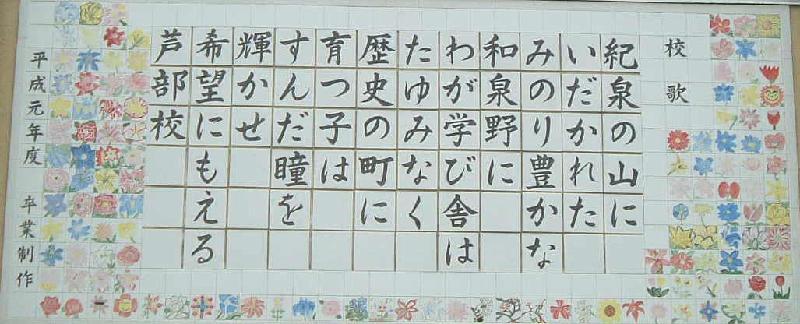 校歌
紀泉の山に
いだかれた
みのり豊かな
和泉野に
わが学び舎は
たゆみなく
歴史の町に
育つ子は
すんだ瞳を
輝かせ
希望にもえる
芦部校
平成元年度 卒業制作